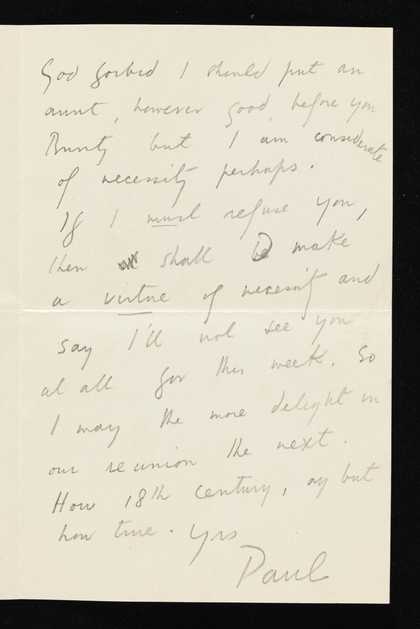 God forbid I should put an
aunt, however good, before you
Bunty but I am considerate
of necessity perhaps.
If I must refuse you,
then shall I make
a virtue of necessity and
say I'll not see you
at all for this week. So
I may the more delight in
our reunion the next.
How 18th century, ay but
how true. Yrs
Paul